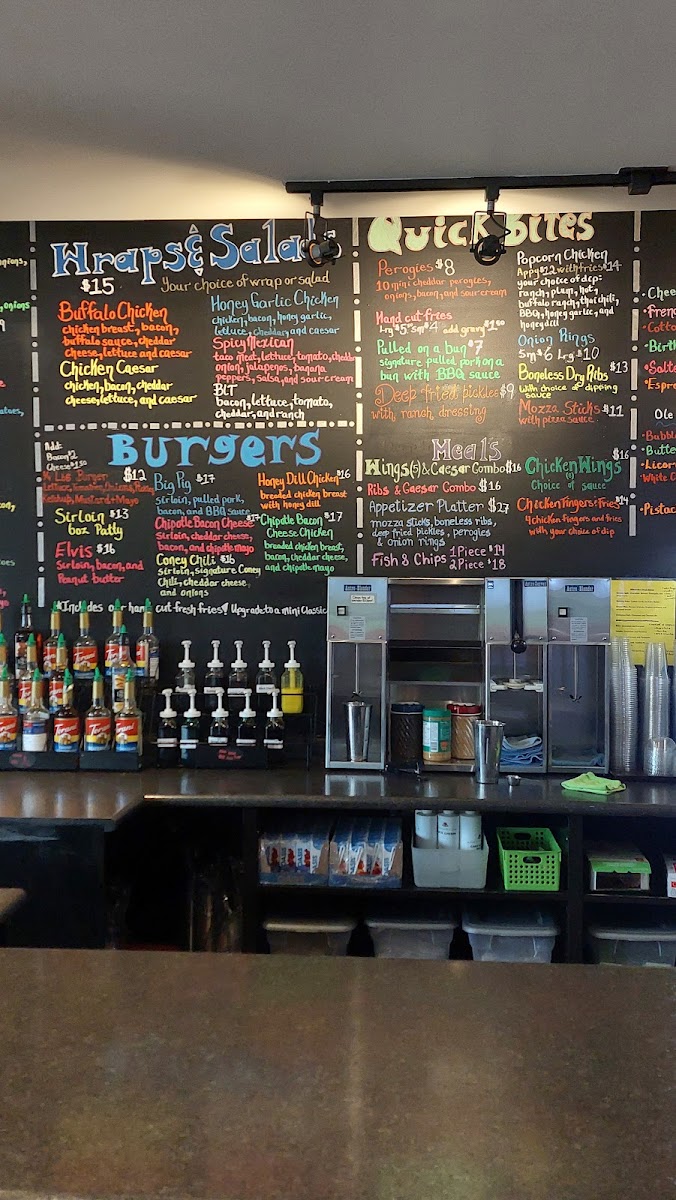 Wraps & Salads
$15
Your choice of wrap or salad
Buffalo Chicken
chicken breast, bacon,
buffalo sauce, cheddar
cheese, lettuce and caesar
Chicken Caesar
chicken, bacon, cheddar
cheese, lettuce, and caesar
Honey Garlic Chicken
chicken, bacon, honey garlic,
lettuce, cheddar, and caesar
Spicy Mexican
taco meat, lettuce, tomato, cheddar
onion, jalapenos, banana
peppers, salsa, and sour cream
BLT
bacon, lettuce, tomato,
cheddar, and ranch
Burgers
Add:
Bacon $2
Cheese $1.50
Burger $12
Lettuce, Tomatoes, Onions, Pickles,
Ketchup, Mustard & Mayo
Sirloin $13
6oz Patty
Elvis $16
Sirloin, bacon, and
Peanut butter
Big Pig $17
sirloin, pulled pork,
bacon, and BBQ sauce
Chipotle Bacon Cheese $17
Sirloin, cheddar cheese,
bacon, and chipotle mayo
Coney Chili $16
Sirloin, Signature Coney
Chili, cheddar cheese,
and onions
Honey Dill Chicken $16
breaded chicken breast
with honey dill
Chipotle Bacon $17
Cheese Chicken
breaded chicken breast,
bacon, cheddar cheese,
and chipotle mayo
*Includes our hand cut fresh fries! Upgrade to a mini Classic
Quick Bites
Perogies $8
10 mini cheddar perogies,
onions, bacon, and sour cream
Hand cut fries
Lrg $5 Sm $4 add gravy $1
Pulled on a bun $7
signature pulled pork on a
bun with BBQ sauce
Deep fried pickles $9
with, ranch, dressing
Popcorn Chicken
App $12 with fries $14
your choice of dep:
ranch, plum, hot,
buffalo ranch, thai chili,
BBQ, honey garlic, and
honey dill
Onion Rings
Sm $6 Lrg $10
Boneless Dry Ribs $13
with choice of dipping
sauce
Mozza Sticks $11
with pizza sauce
Meals
Wings (5) & Caesar Combo $16
Ribs & Caesar Combo $16
Appetizer Platter $27
mozza sticks, boneless ribs,
deep fried pickles, perogies
& onion rings
Fish & Chips 1 Piece $14
2 Piece $18
$16
Chicken Wings
Choice of sauce
Chicken Fingers & Fries $14
4 chicken fingers and fries
with your choice of dip
Torani